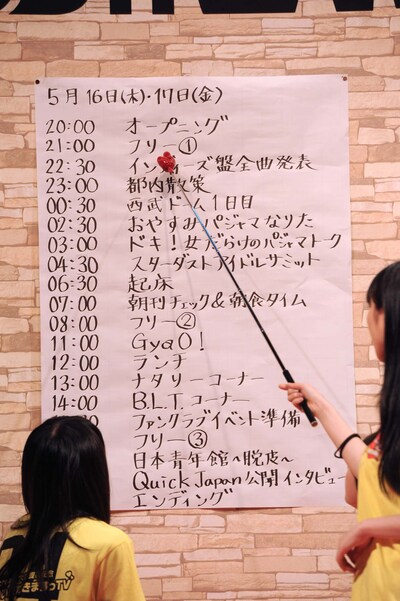 5月16日(木)・17日(金)
20:00 オープニング
21:00 フリー①
22:30 インディーズ盤全曲発表
23:00 都内散策
00:30 西武ドーム1日目
02:30 おやすみパジャマなりた
03:00 ドキ!女だらけのパジャマトーク
04:30 スターダストアイドルサミット
06:30 起床
07:00 朝刊チェック&朝食タイム
08:00 フリー②
11:00 GyaO!
12:00 ランチ
13:00 ナタリーコーナー
14:00 B.L.T.コーナー
ファンクラブイベント準備
フリー③
日本青年館〜脱皮〜
Quick Japan公開インタビュー
エンディング
TV